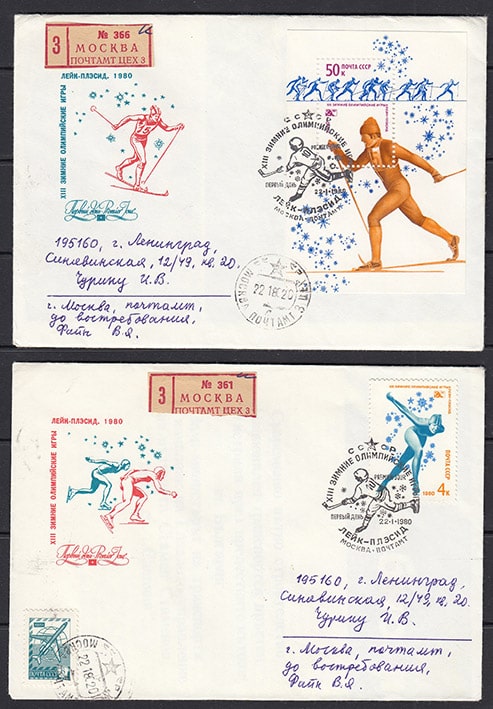 3 № 366
МОСКВА
ПОЧТАМТ ЦЕХ 3
ЛЕЙК-ПЛЭСИД, 1980
XIII ЗИМНИЕ ОЛИМПИЙСКИЕ ИГРЫ
Первый день Premier Jour
50к ПОЧТА СССР
XIII ЗИМНИЕ ОЛИМПИЙСКИЕ ИГРЫ
СССР
XIII ЗИМНИЕ ОЛИМПИЙСКИЕ ИГРЫ
PREMIER JOUR
ПЕРВЫЙ ДЕНЬ
22-1-1980
ЛЕЙК-ПЛЭСИД
МОСКВА-ПОЧТАМТ
195160, г. Ленинград,
Синявинская, 12/49, кв. 20.
Чурину И.В.
г. Москва, почтамт,
до востребования,
Фатн В.Я.
МОСКВА ПОЧТАМТ
22 1 80 20
3 № 361
МОСКВА
ПОЧТАМТ ЦЕХ 3
ЛЕЙК-ПЛЭСИД, 1980
XIII ЗИМНИЕ ОЛИМПИЙСКИЕ ИГРЫ
Первый день Premier Jour
ПОЧТА СССР
1980 4к
СССР
XIII ЗИМНИЕ ОЛИМПИЙСКИЕ ИГРЫ
PREMIER JOUR
ПЕРВЫЙ ДЕНЬ
22-1-1980
ЛЕЙК-ПЛЭСИД
МОСКВА-ПОЧТАМТ
195160, г. Ленинград,
Синявинская, 12/49, кв. 20.
Чурину И.В.
г. Москва, почтамт,
до востребования,
Фатн В.Я.
ПОЧТА СССР